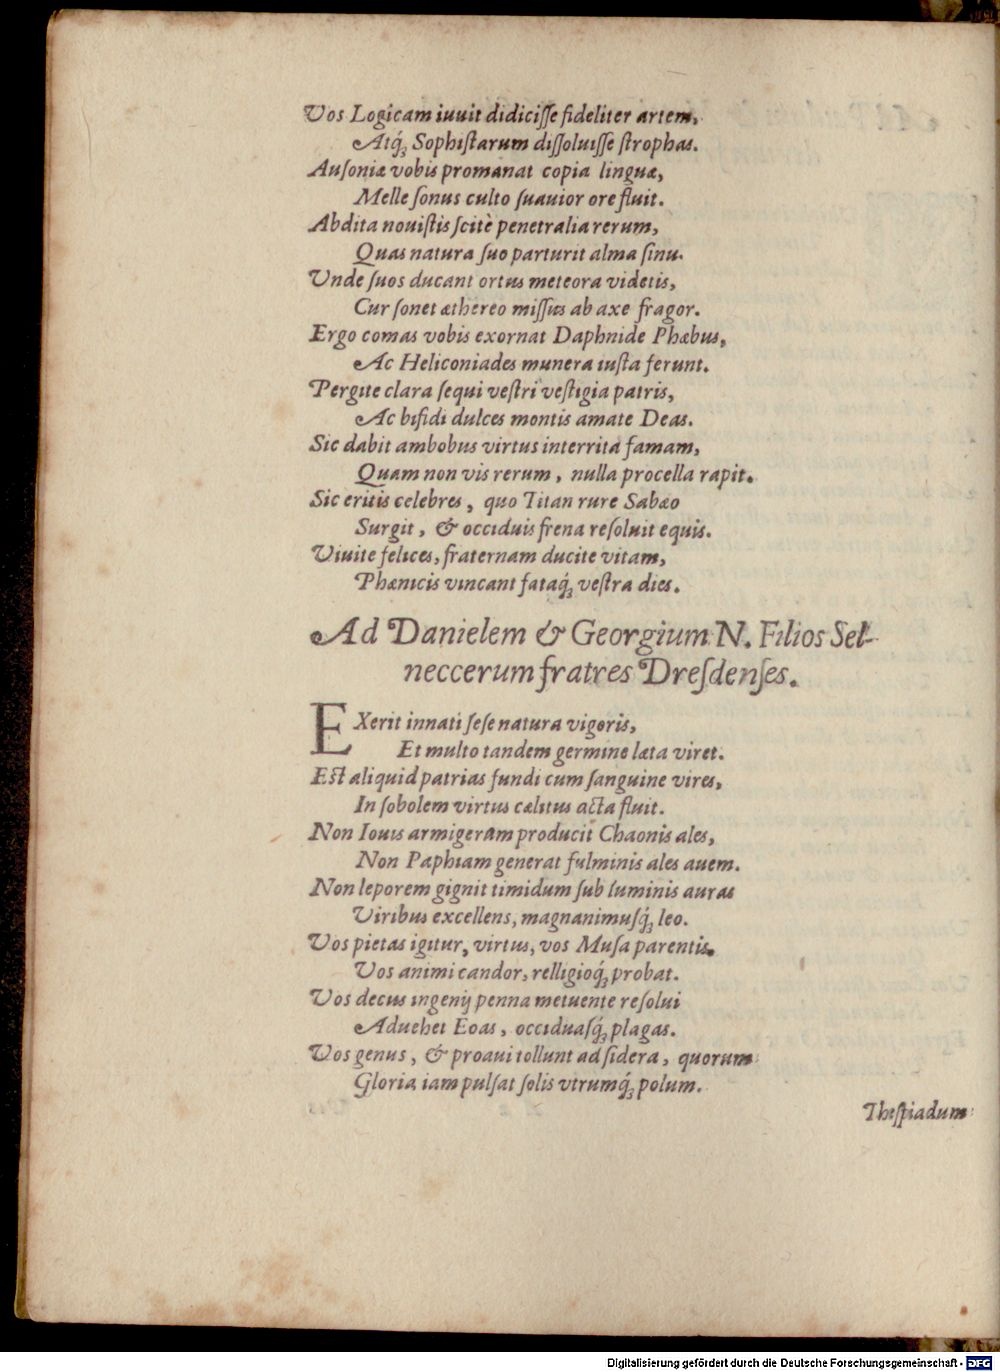 Vos Logicam iuuit didiciſſe fideliter artem,
Atq́ꝫ Sophiſtarum diſſoluiſſe ſtrophas.
Auſoniæ vobis promanat copia linguæ,
Melle ſonus culto ſuauior ore fluit.
Abdita nouiſtis ſcitè penetralia rerum,
Quas natura ſuo parturit alma ſinu.
Unde ſuos ducant ortus meteora videtis,
Cur ſonet æthereo miſſus ab axe fragor.
Ergo comas vobis exornat Daphnide Phæbus,
Ac Heliconiades munera iuſta ferunt.
Pergite clara ſequi veſtri veſtigia patris,
Ac bifidi dulces montis amate Deas.
Sic dabit ambobus virtus interrita famam,
Quam non vis rerum, nulla procella rapit.
Sic eritis celebres, quo Titan rure Sabæo
Surgit, & occiduis frena reſoluit equis.
Viuite felices, fraternam ducite vitam,
Phænicis vincant fataq́ꝫ veſtra dies.
Ad Danielem & Georgium N. Filios Sel-
neccerum fratres Dreſdenſes.
EXerit innati ſeſe natura vigoris,
Et multo tandem germine læta viret.
Eſt aliquid patrias fundi cum ſanguine vires,
In ſobolem virtus cælitus acta fluit.
Non Iouis armigeram producit Chaonis ales,
Non Paphiam generat fulminis ales auem.
Non leporem gignit timidum ſub luminis auras
Viribus excellens, magnanimuſq́ꝫ leo.
Vos pietas igitur, virtus, vos Muſa parentis,
Vos animi candor, relligioq́ꝫ probat.
Vos decus ingenij penna metuente reſolui
Aduehet Eoas, occiduaſq́ꝫ plagas.
Vos genus, & proaui tollunt ad ſidera, quorum
Gloria iam pulſat ſolis vtrumq́ꝫ polum.
Theſpiadum
Digitalisierung gefördert durch die Deutsche Forschungsgemeinschaft - DFG